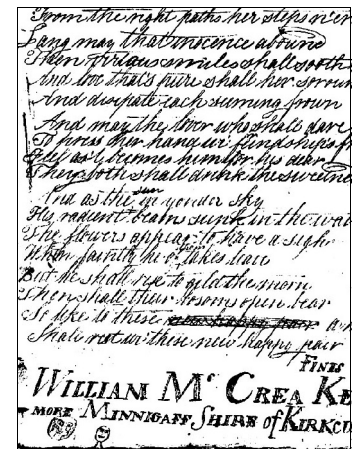 From the right paths her steps n'er
Lang may that inocence abound
Then Virtues smiles shall sooth
And love that's pure shall her sorrow
And disipate each surning frown
And may the lover who shall dare
To press her hand in friendships
as it becomes him for his dear
They both shall drink the sweetne
sun
And as the in yonder sky
His radient beams sunk in the wa
The flowers appear to have a sigh
When faintly he takes leave
But he shall rise to gild the morn
Then shall their bosoms open bear
So like to these
Shall not in these new happy pair
Fines
WILLIAM Mc CREA KE
MORE MINNIGAFF SHIRE of KIRKCU